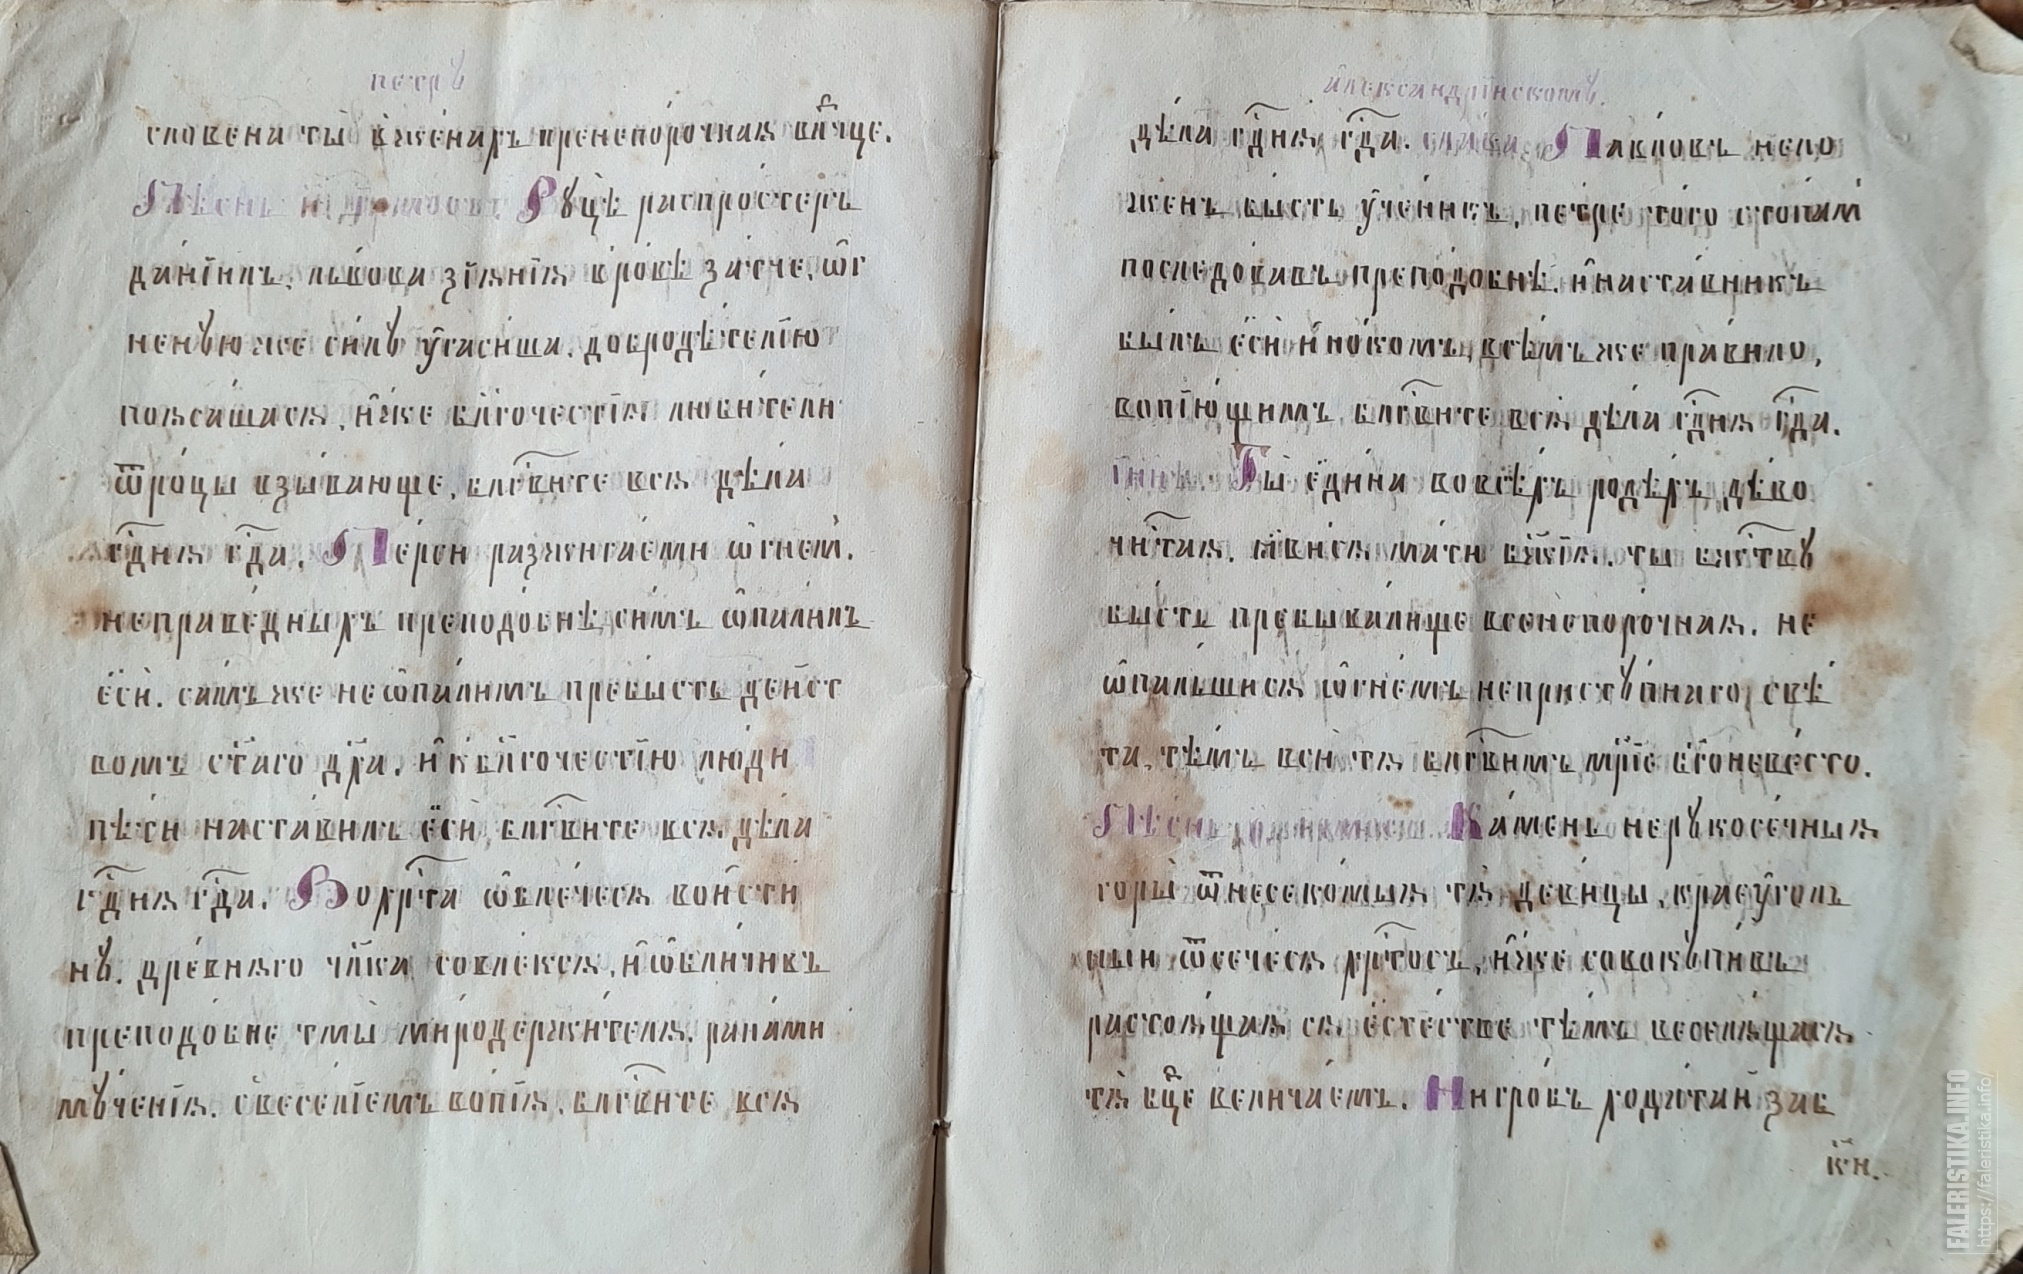 петрꙋ
словена ты̀ в̾жена́хъ пренепоро́чнаѧ влⷣчце.
Пѣснь и҃ І҆рмосъ. Рꙋцѣ распросте́ръ
данїи́лъ, львова зїѧнїѧ в̾ро́вѣ затче, ѡ҆г
неннꙋю же си́лꙋ ᲂу҆гаси́ша, добродѣ́телїю
поѧса́шасѧ, и҆́же бл҃гоче́стїѧ люби́тели
ѻ҆́троцы взыва́юще, блгⷭ҇ви́те всѧ̀ дѣла̀
гдⷭ҇нѧ гдⷭ҇а. Пе́рси разжига́еми ѡ҆гне́м̾.
непра́ведныхъ преподо́бне, си́мъ ѡ҆пали́лъ
є҆сѝ. са́мъ же неѡ҆пали́мъ пребы́сть де́йст
вомъ ст҃а́го дх҃а, и҆ к̾бл҃гоче́стїю лю́ди
пѣ́ти наста́вилъ є҆сѝ, блгⷭ҇ви́те всѧ̀ дѣла̀
гдⷭ҇нѧ гдⷭ҇а. Во хрⷭ҇та̀ ѡ҆блече́сѧ во и҆́сти
нꙋ. дре́внѧго чл҃ка совле́ксѧ, и҆ ѡ҆бличи́въ
преподо́бне тмы̀ миродержи́телѧ, ра́нами
мꙋче́нїѧ. с̾весе́лїемъ вопїѧ̀, блгⷭ҇ви́те всѧ̀
а҆леѯандрі́йскомꙋ.
дѣла̀ гдⷭ҇нѧ гдⷭ҇а. сла́ва. Па́вловъ нело
женъ бы́сть ᲂу҆чени́къ, пе́тре того̀ стопа́м̾
последовавъ преподо́бнѣ, и҆ наста́вникъ
бы́лъ є҆сѝ и҆́нокомъ, всѣ́мъ же пра́вило,
вопїю́щимъ, блгⷭ҇ви́те всѧ̀ дѣла̀ гдⷭ҇нѧ гдⷭ҇а.
и҆ нн҃ѣ. Ты̀ є҆ди́на во всѣ́хъ родѣ́хъ дѣ́во
чи́стаѧ, ꙗ҆ви́сѧ ма́ти бж҃їѧ. ты̀ бж҃ествꙋ̀
бы́сть пребыва́лище всенепоро́чнаѧ, не
ѡ҆па́льшисѧ ѡ҆гне́мъ непристꙋ́пнаго свѣ́
та, тѣ́мъ всѝ тѧ̀ блгⷭ҇ви́мъ мр҃і́е бг҃оневе́сто.
Пѣ́снь, ѳ҃. і҆рмосъ. Ка́мень нерꙋкосе́чныѧ
горы̀ ѿнесеко́мыѧ тѧ̀ деви́цы, краеᲂу҆́голъ
ныи ѿсече́сѧ хрⷭ҇то́съ, и҆́же совокꙋпи́въ
растоѧ́щаѧ сѧ̀ є҆стества̀ тѣ́мъ веселѧ́щисѧ
тѧ̀ бцⷣе велича́емъ. Ни гро́въ
би.
FALERISTIKA.INFO
https://faleristika.info/